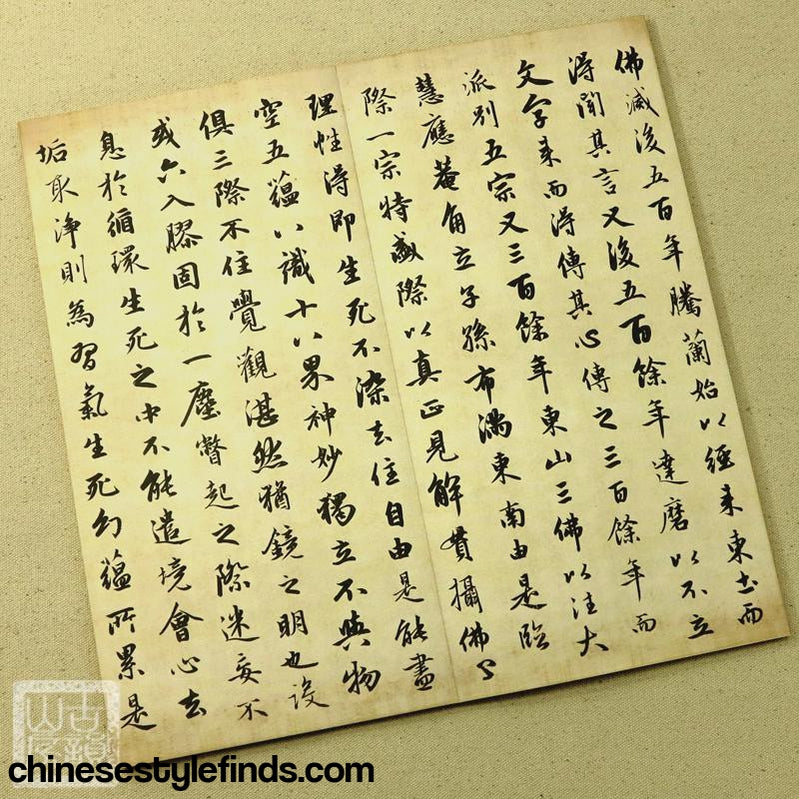 佛滅後五百年騰蘭始以經来東土而
得聞其言又後五百餘年達磨以不立
文字来而得傳其心傳之三百餘年而
派別五宗又三百餘年東山三佛以注大
慧應菴角立子孫布滿東南由是臨
際一宗特盛際以真正見解貫攝佛心
理性得即生死不染去住自由是能盡
空五蘊八識十八界神妙獨立不與物
俱三際不住覺觀湛然猶鏡之明也設
或六入膠固於一塵瞥起之際迷妄不
息於循環生死之中不能遣境會心去
垢取淨則為習氣生死幻蘊所累是
chinesestylefinds.com